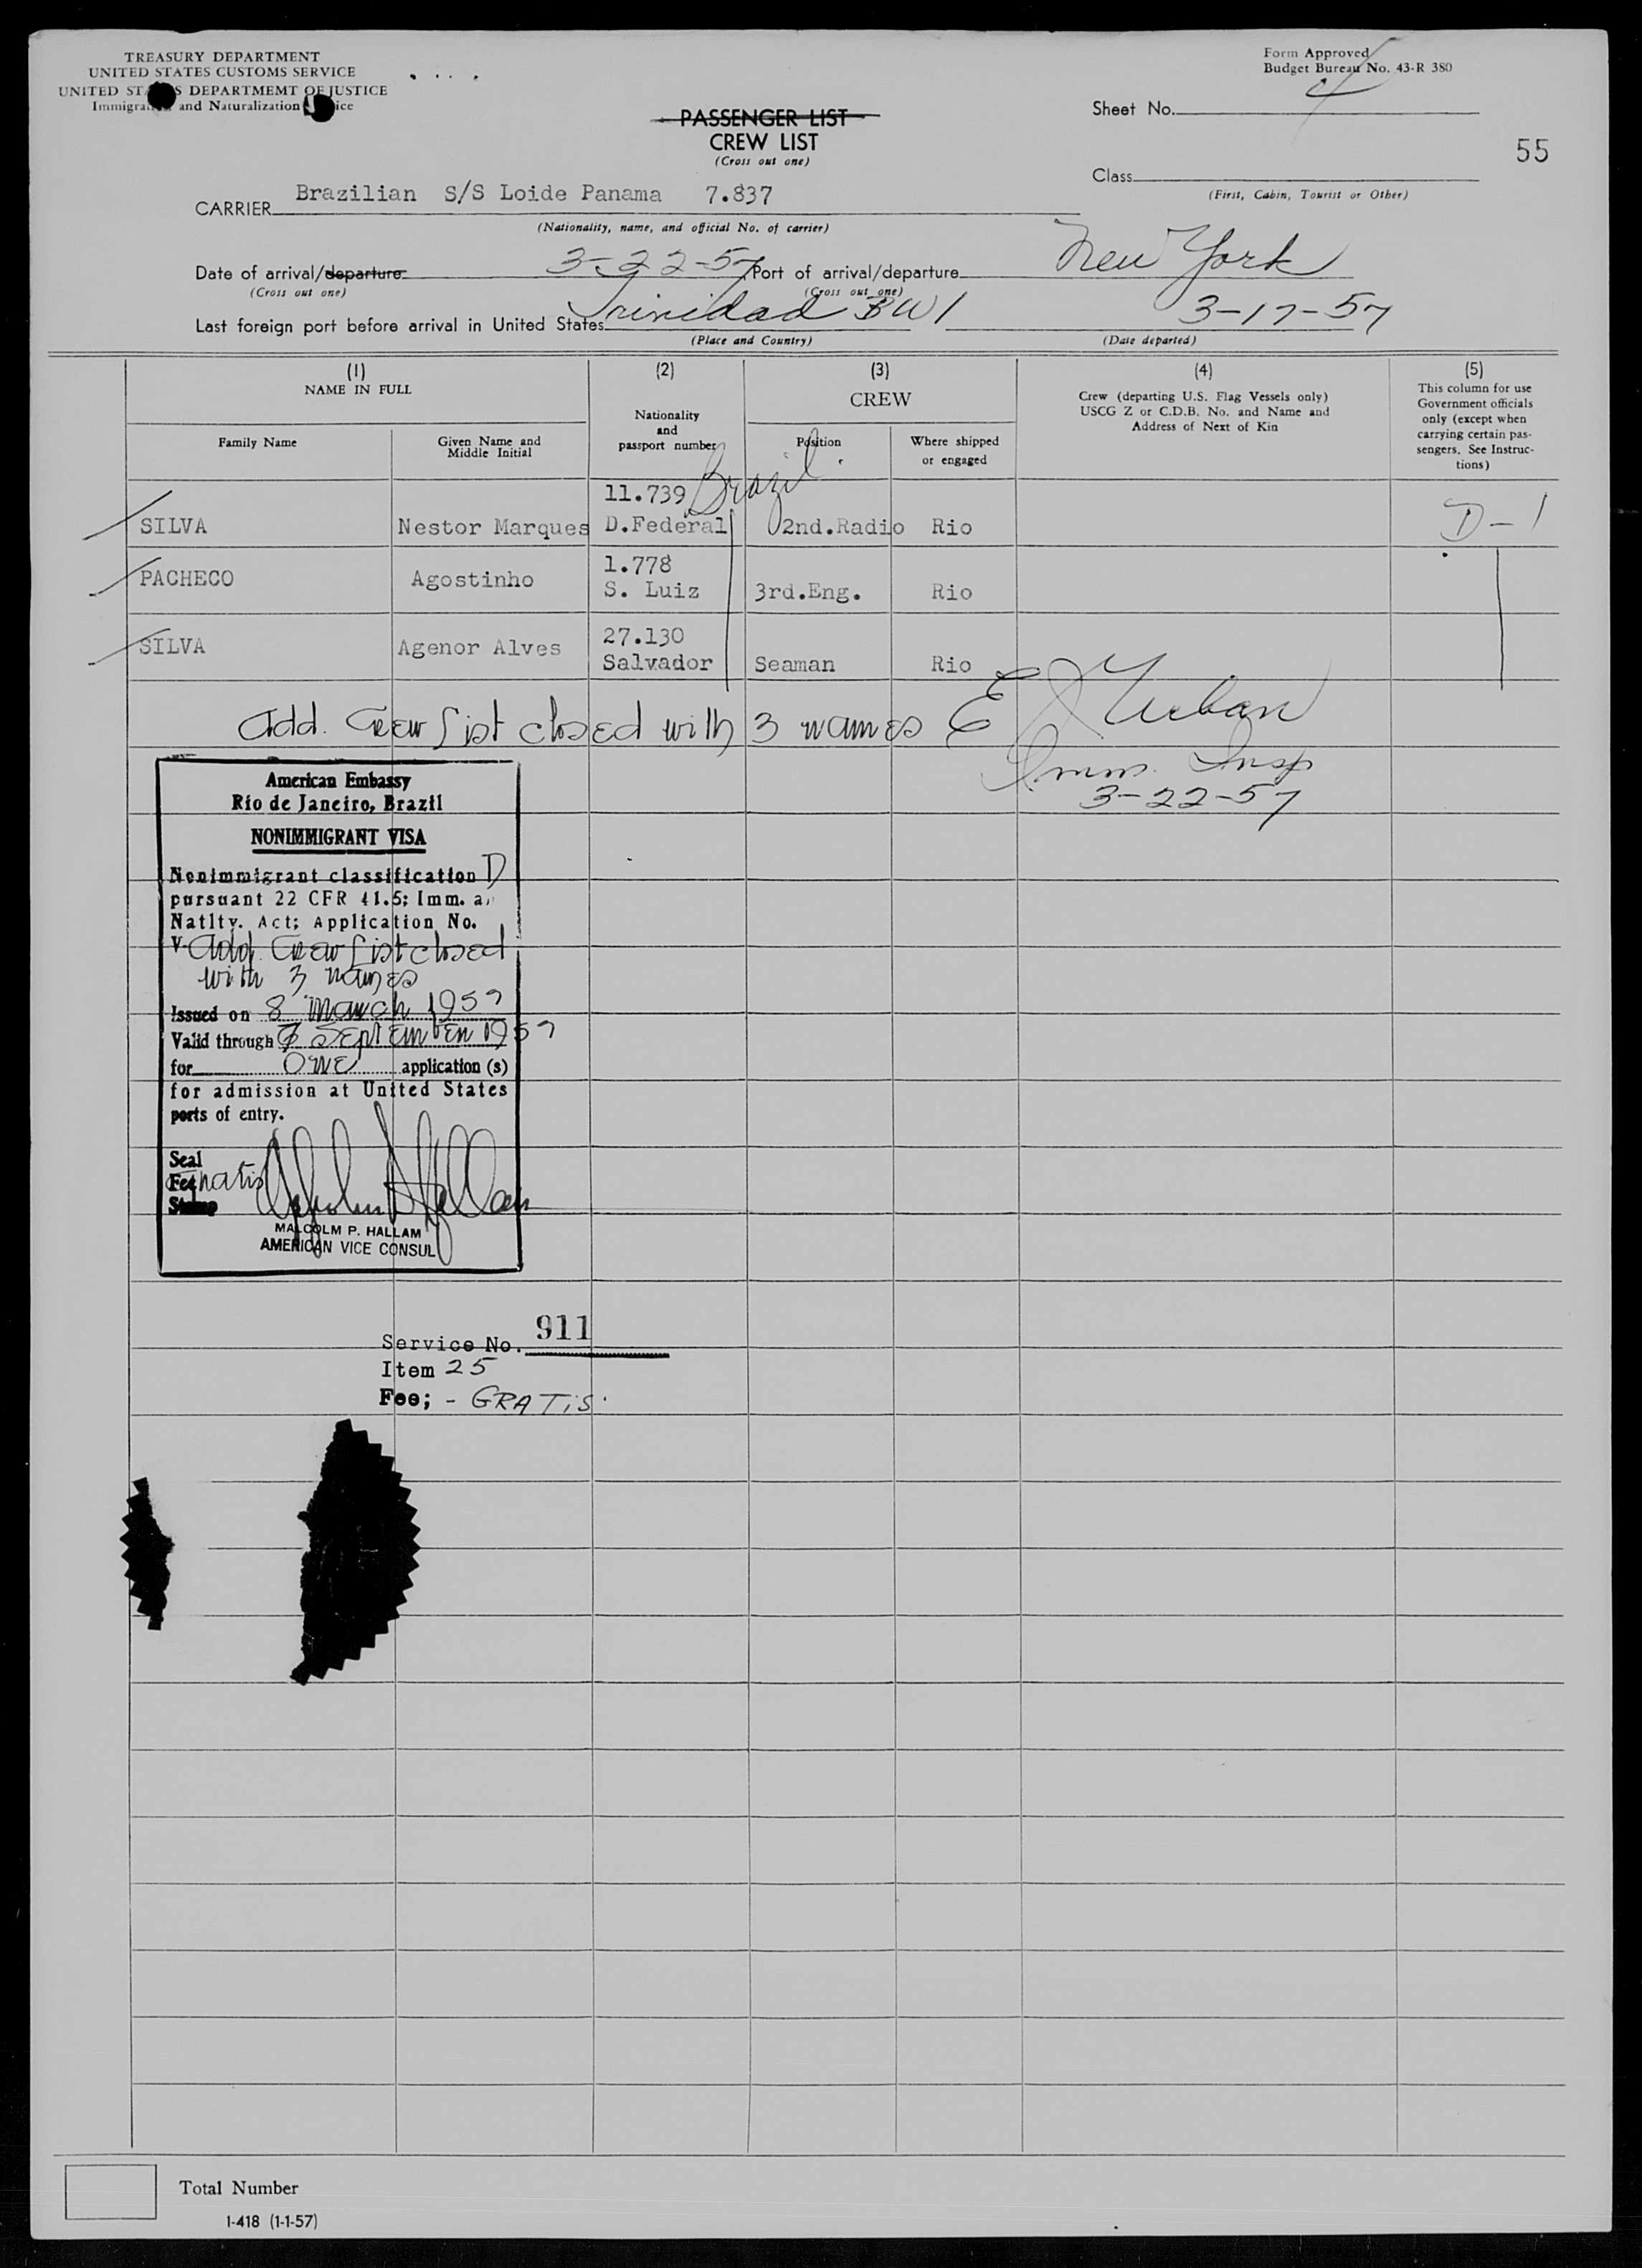 TREASURY DEPARTMENT
UNITED STATES CUSTOMS SERVICE
UNITED STATES DEPARTMEMT OF JUSTICE
Immigration and Naturalization Service
Form Approved
Budget Bureau No. 43-R 380
PASSENGER LIST
CREW LIST
(Cross out one)
Sheet No. 4
55
Class
(First, Cabin, Tourist or Other)
CARRIER Brazilian S/S Loide Panama 7.837
(Nationality, name, and official No. of carrier)
Date of arrival/departure 3-22-57 Port of arrival/departure New York
(Cross out one) (Cross out one)
Last foreign port before arrival in United States Trinidad BWI 3-17-57
(Place and Country) (Date departed)
(1) (2) (3) (4) (5)
NAME IN FULL
Family Name
Given Name and
Middle Initial
Nationality
and
passport number
CREW
Position
Where shipped
or engaged
Crew (departing U.S. Flag Vessels only)
USCG Z or C.D.B. No. and Name and
Address of Next of Kin
This column for use
Government officials
only (except when
carrying certain pas-
sengers. See Instruc-
tions)
11.739 Brazil
SILVA Nestor Marques D.Federal 2nd.Radio Rio D-1
1.778
PACHECO Agostinho S. Luiz 3rd.Eng. Rio
27.130
SILVA Agenor Alves Salvador Seaman Rio
Add. Crew List closed with 3 names E J Urban
Imm. Insp
3-22-57
American Embassy
Rio de Janeiro, Brazil
NONIMMIGRANT VISA
Nonimmigrant classification D
pursuant 22 CFR 41.5; Imm. a
Natlty. Act; Application No.
V- Add. Crew List closed
with 3 names
Issued on 8 March 1957
Valid through 7 September 1957
for ONE application (s)
for admission at United States
ports of entry.
Seal
Fee Gratis
Stamp
MALCOLM P. HALLAM
AMERICAN VICE CONSUL
Service No. 911
Item 25
Fee; - GRATIS.
Total Number
I-418 (1-1-57)